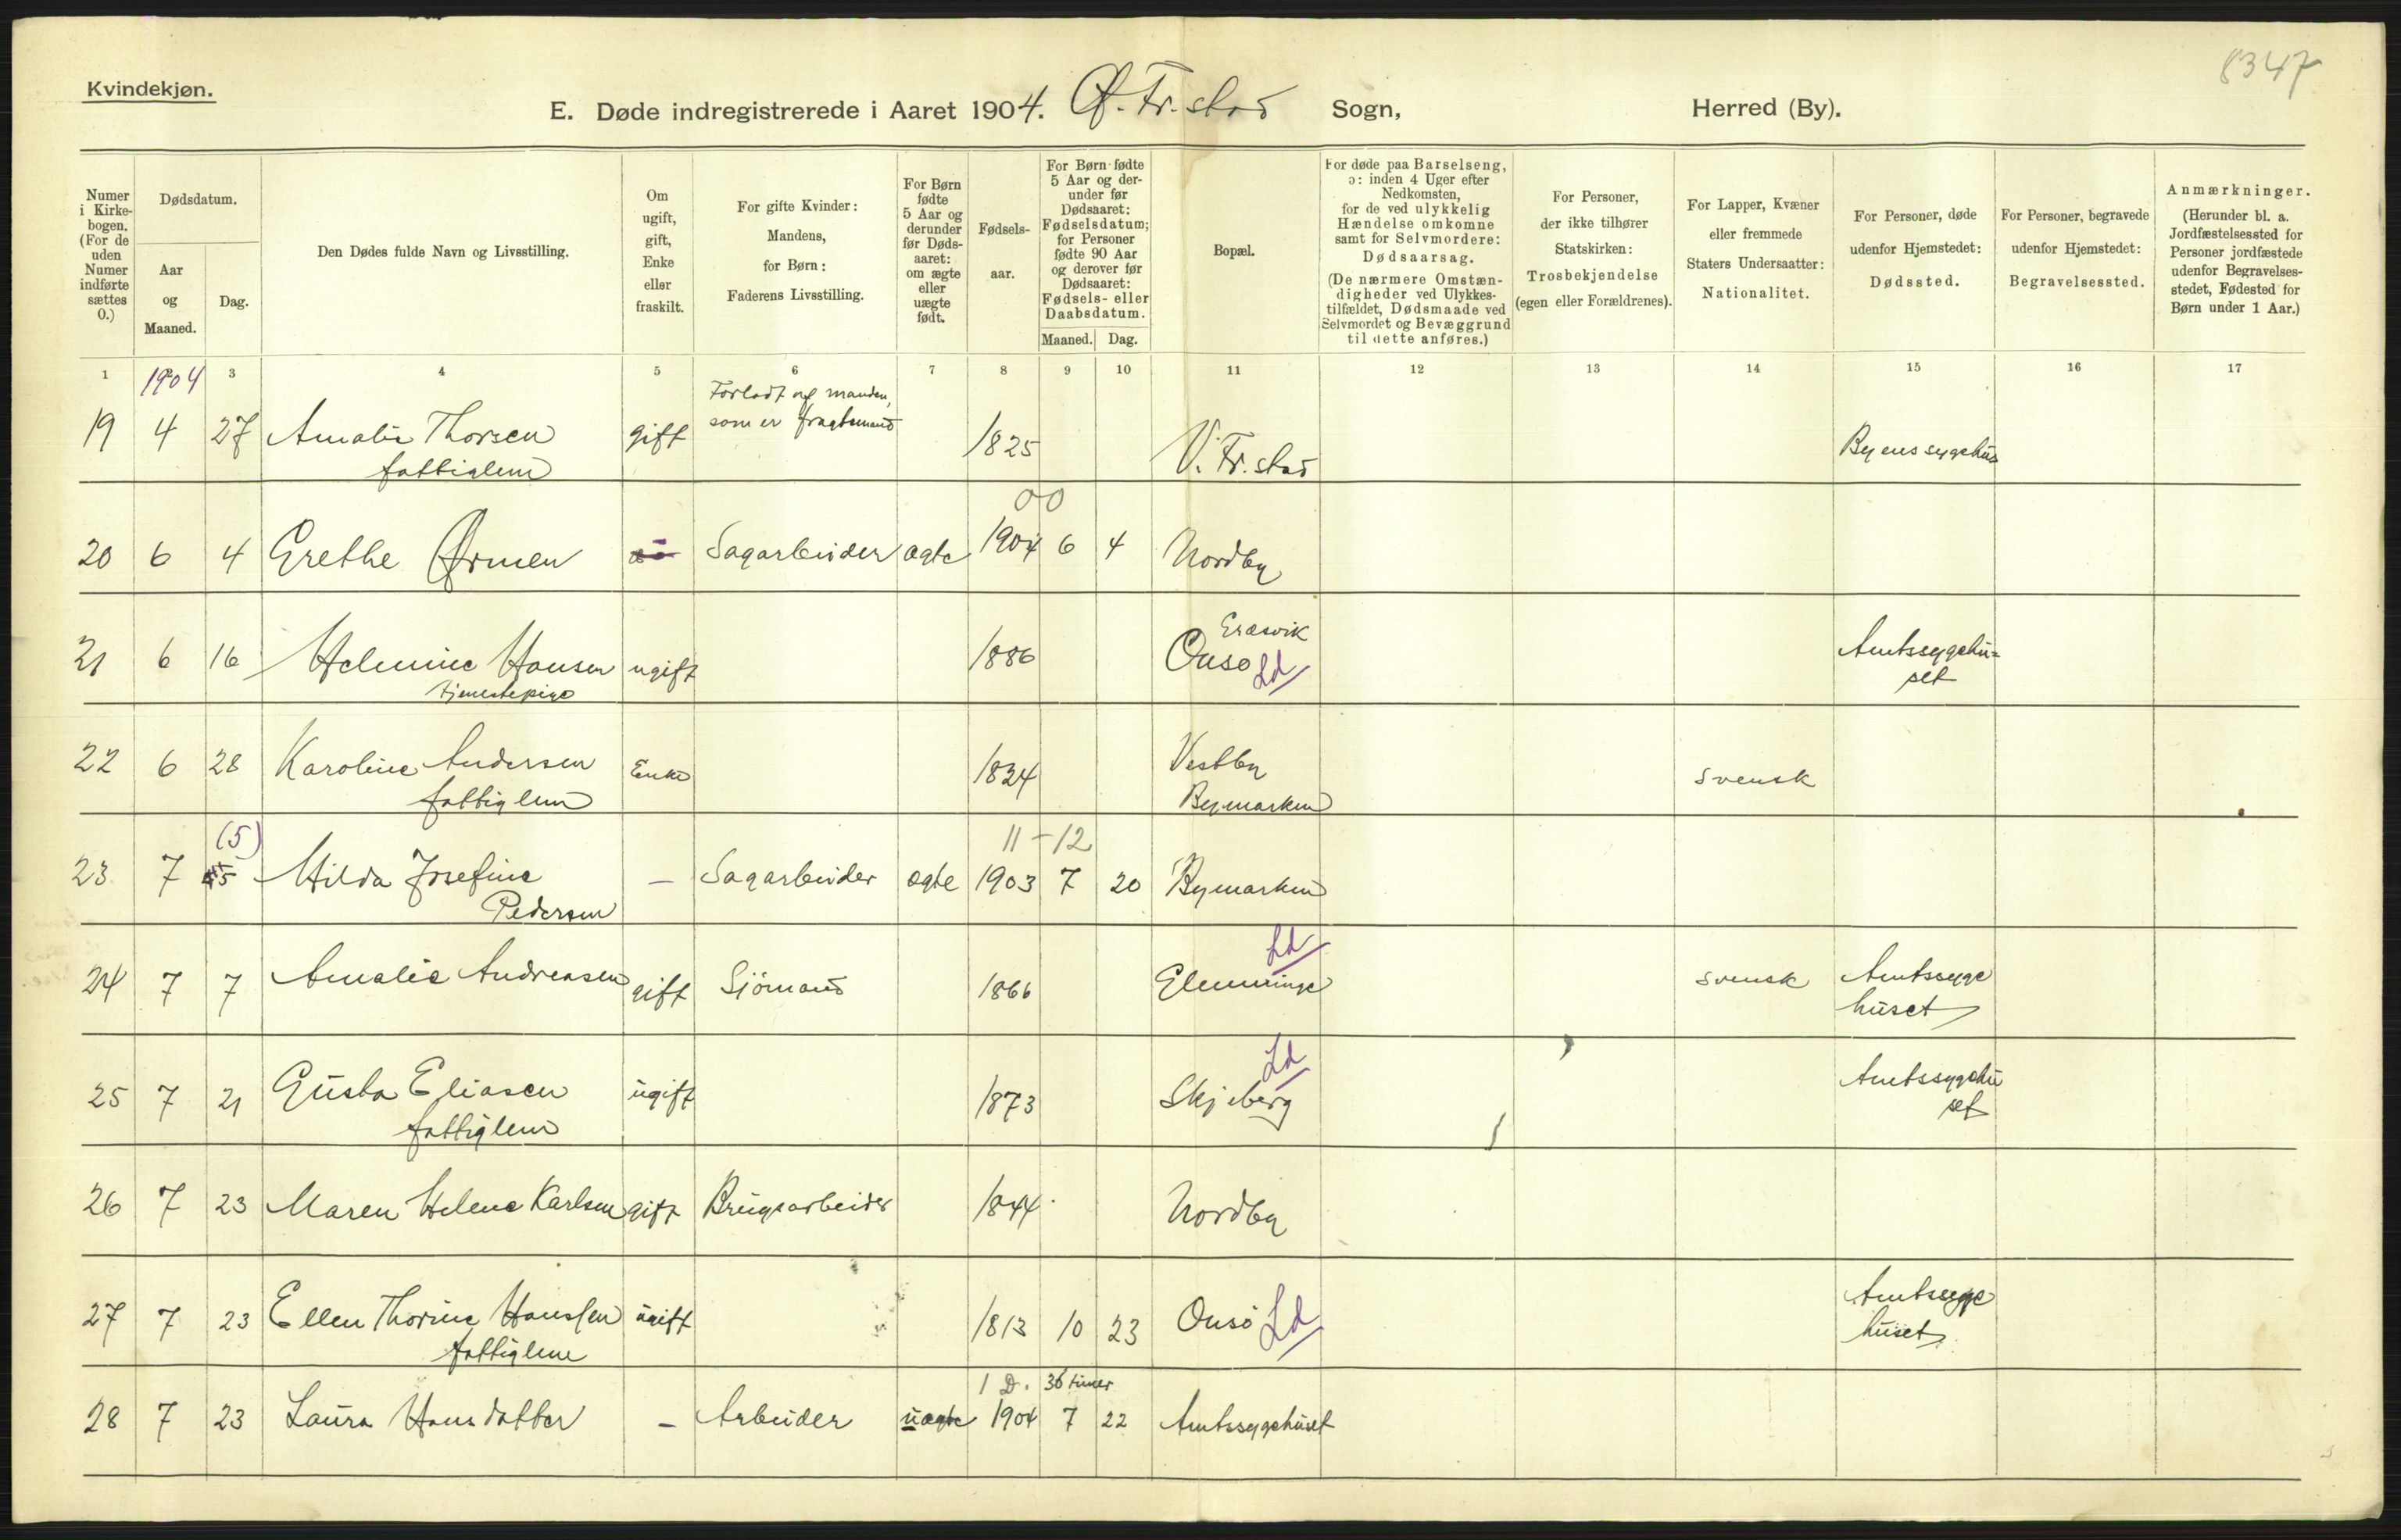 8347
Kvindekjøn.
E. Døde indregistrerede i Aaret 1904. Ø. Fr.stad Sogn, Herred (By).
Numer i Kirkebogen. (For de uden Numer indførte sættes 0.)
Dødsdatum.
Aar og Maaned.
Dag.
Den Dødes fulde Navn og Livsstilling.
Om ugift, gift, Enke eller fraskilt.
For gifte Kvinder: Mandens, for Børn: Faderens Livsstilling.
For Børn fødte 5 Aar og derunder før Dødsaaret: om ægte eller uægte født.
Fødselsaar.
For Børn fødte 5 Aar og derunder før Dødsaaret: Fødselsdatum; for Personer fødte 90 Aar og derover før Dødsaaret: Fødsels- eller Daabsdatum.
Maaned. Dag.
Bopæl.
For døde paa Barselseng, ɔ: inden 4 Uger efter Nedkomsten, for de ved ulykkelig Hændelse omkomne samt for Selvmordere: Dødsaarsag. (De nærmere Omstændigheder ved Ulykkestilfældet, Dødsmaade ved Selvmordet og Bevæggrund til dette anføres.)
For Personer, der ikke tilhører Statskirken: Trosbekjendelse (egen eller Forældrenes).
For Lapper, Kvæner eller fremmede Staters Undersaatter: Nationalitet.
For Personer, døde udenfor Hjemstedet: Dødssted.
For Personer, begravede udenfor Hjemstedet: Begravelsessted.
Anmærkninger. (Herunder bl. a. Jordfæstelsessted for Personer jordfæstede udenfor Begravelsesstedet, Fødested for Børn under 1 Aar.)
1 2 3 4 5 6 7 8 9 10 11 12 13 14 15 16 17
1904
Forladt af manden,
som er fragtmand
19 4 27 Amalie Thorsen gift 1825 V. Fr.stad Byens sygehus
fattiglem
00
20 6 4 Grethe Ørmen Sagarbeider ægte 1904 6 4 Nordby
Græsvik
21 6 16 Helmine Hansen ugift 1886 Onsø Ld Amtssygehu=
tjenestepige set
22 6 28 Karoline Andersen Enke 1834 Vestby svensk
fattiglem Bymarken
(5) 11-12
23 7 5 Hilda Josefine — Sagarbeider ægte 1903 7 20 Bymarken
Pedersen
Ld
24 7 7 Amalie Andreasen gift Sjömand 1866 Glemminge svensk Amtssyge
huset
Ld
25 7 21 Gusta Eliasen ugift 1873 Skjeberg Amtssygehu
fattiglem set
26 7 23 Maren Helene Karlsen gift Brugsarbeider 1844 Nordby
27 7 23 Ellen Thorine Hanssen ugift 1813 10 23 Onsö Ld Amtssyge
fattiglem huset
1 D. 36 timer
28 7 23 Laura Hansdatter — Arbeider uægte 1904 7 22 Amtssygehuset